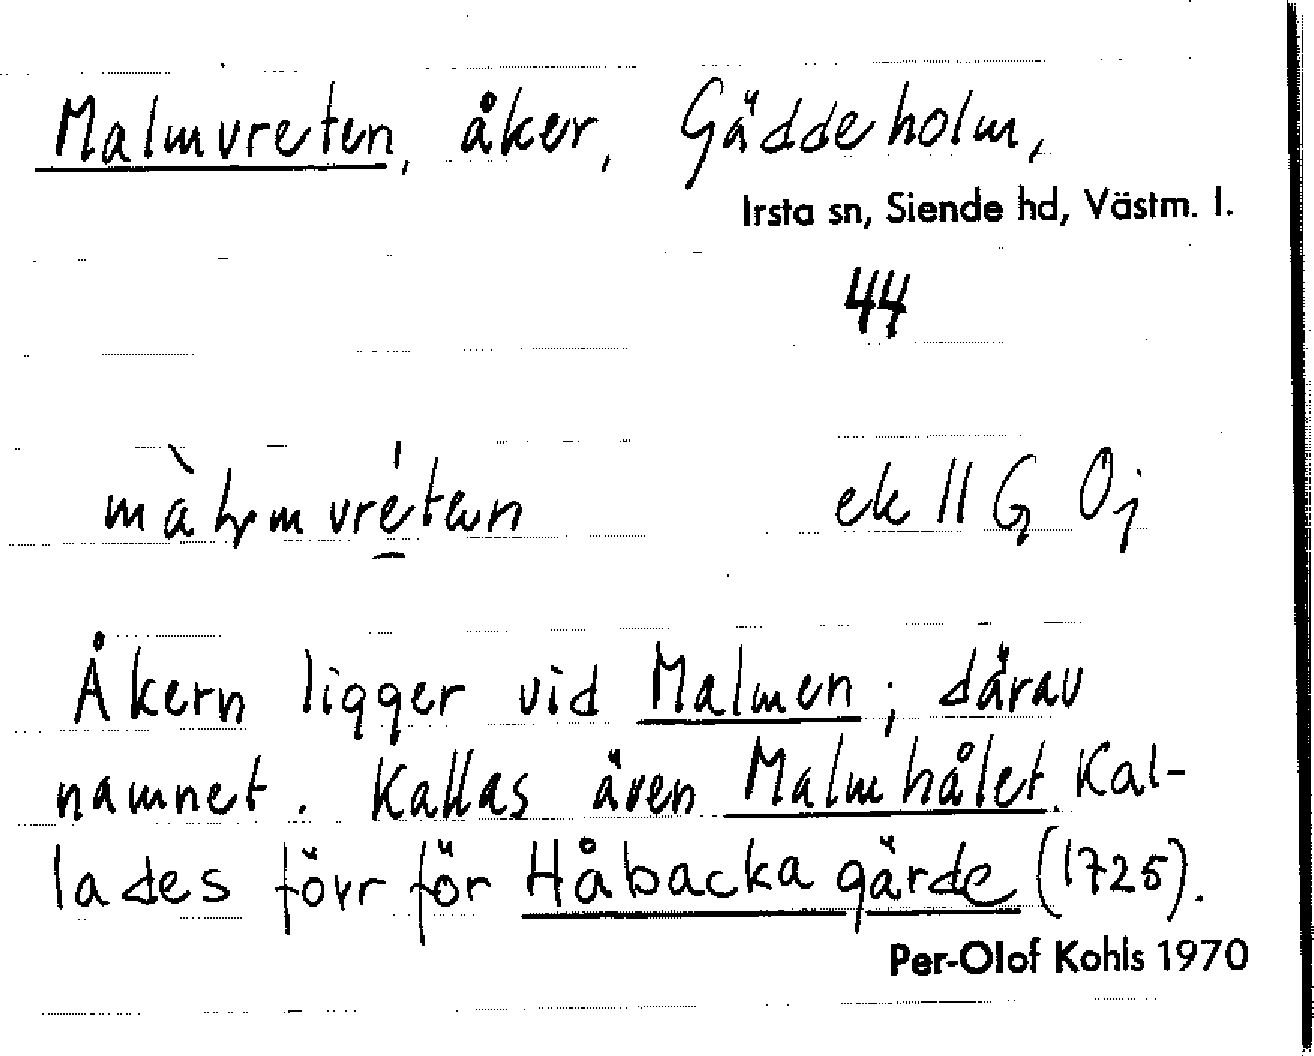 Malmvreten, åker, Gäddeholm,
Irsta sn, Siende hd, Västm. l.
44
ek 11 G Oj
Åkern ligger vid Malmen; därav
namnet. Kallas även Malmhålet. Kal-
lades förr för Håbacka gärde (1725).
Per-Olof Kohls 1970